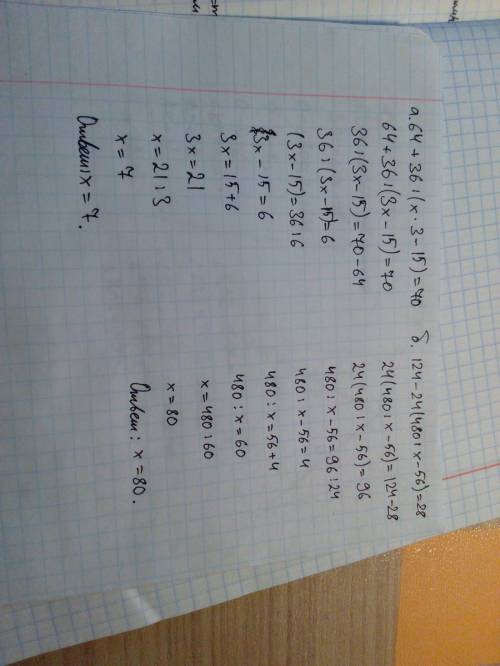 а. 64 + 36 : (х · 3 - 15) = 70
64 + 36 : (3х - 15) = 70
36 : (3х - 15) = 70 - 64
36 : (3х - 15) = 6
(3х - 15) = 36 : 6
3х - 15 = 6
3х = 15 + 6
3х = 21
х = 21 : 3
х = 7
Ответ: х = 7.
б. 124 - 24(480 : х - 56) = 28
24(480 : х - 56) = 124 - 28
24(480 : х - 56) = 96
480 : х - 56 = 96 : 24
480 : х - 56 = 4
480 : х = 56 + 4
480 : х = 60
х = 480 : 60
х = 80
Ответ: х = 80.